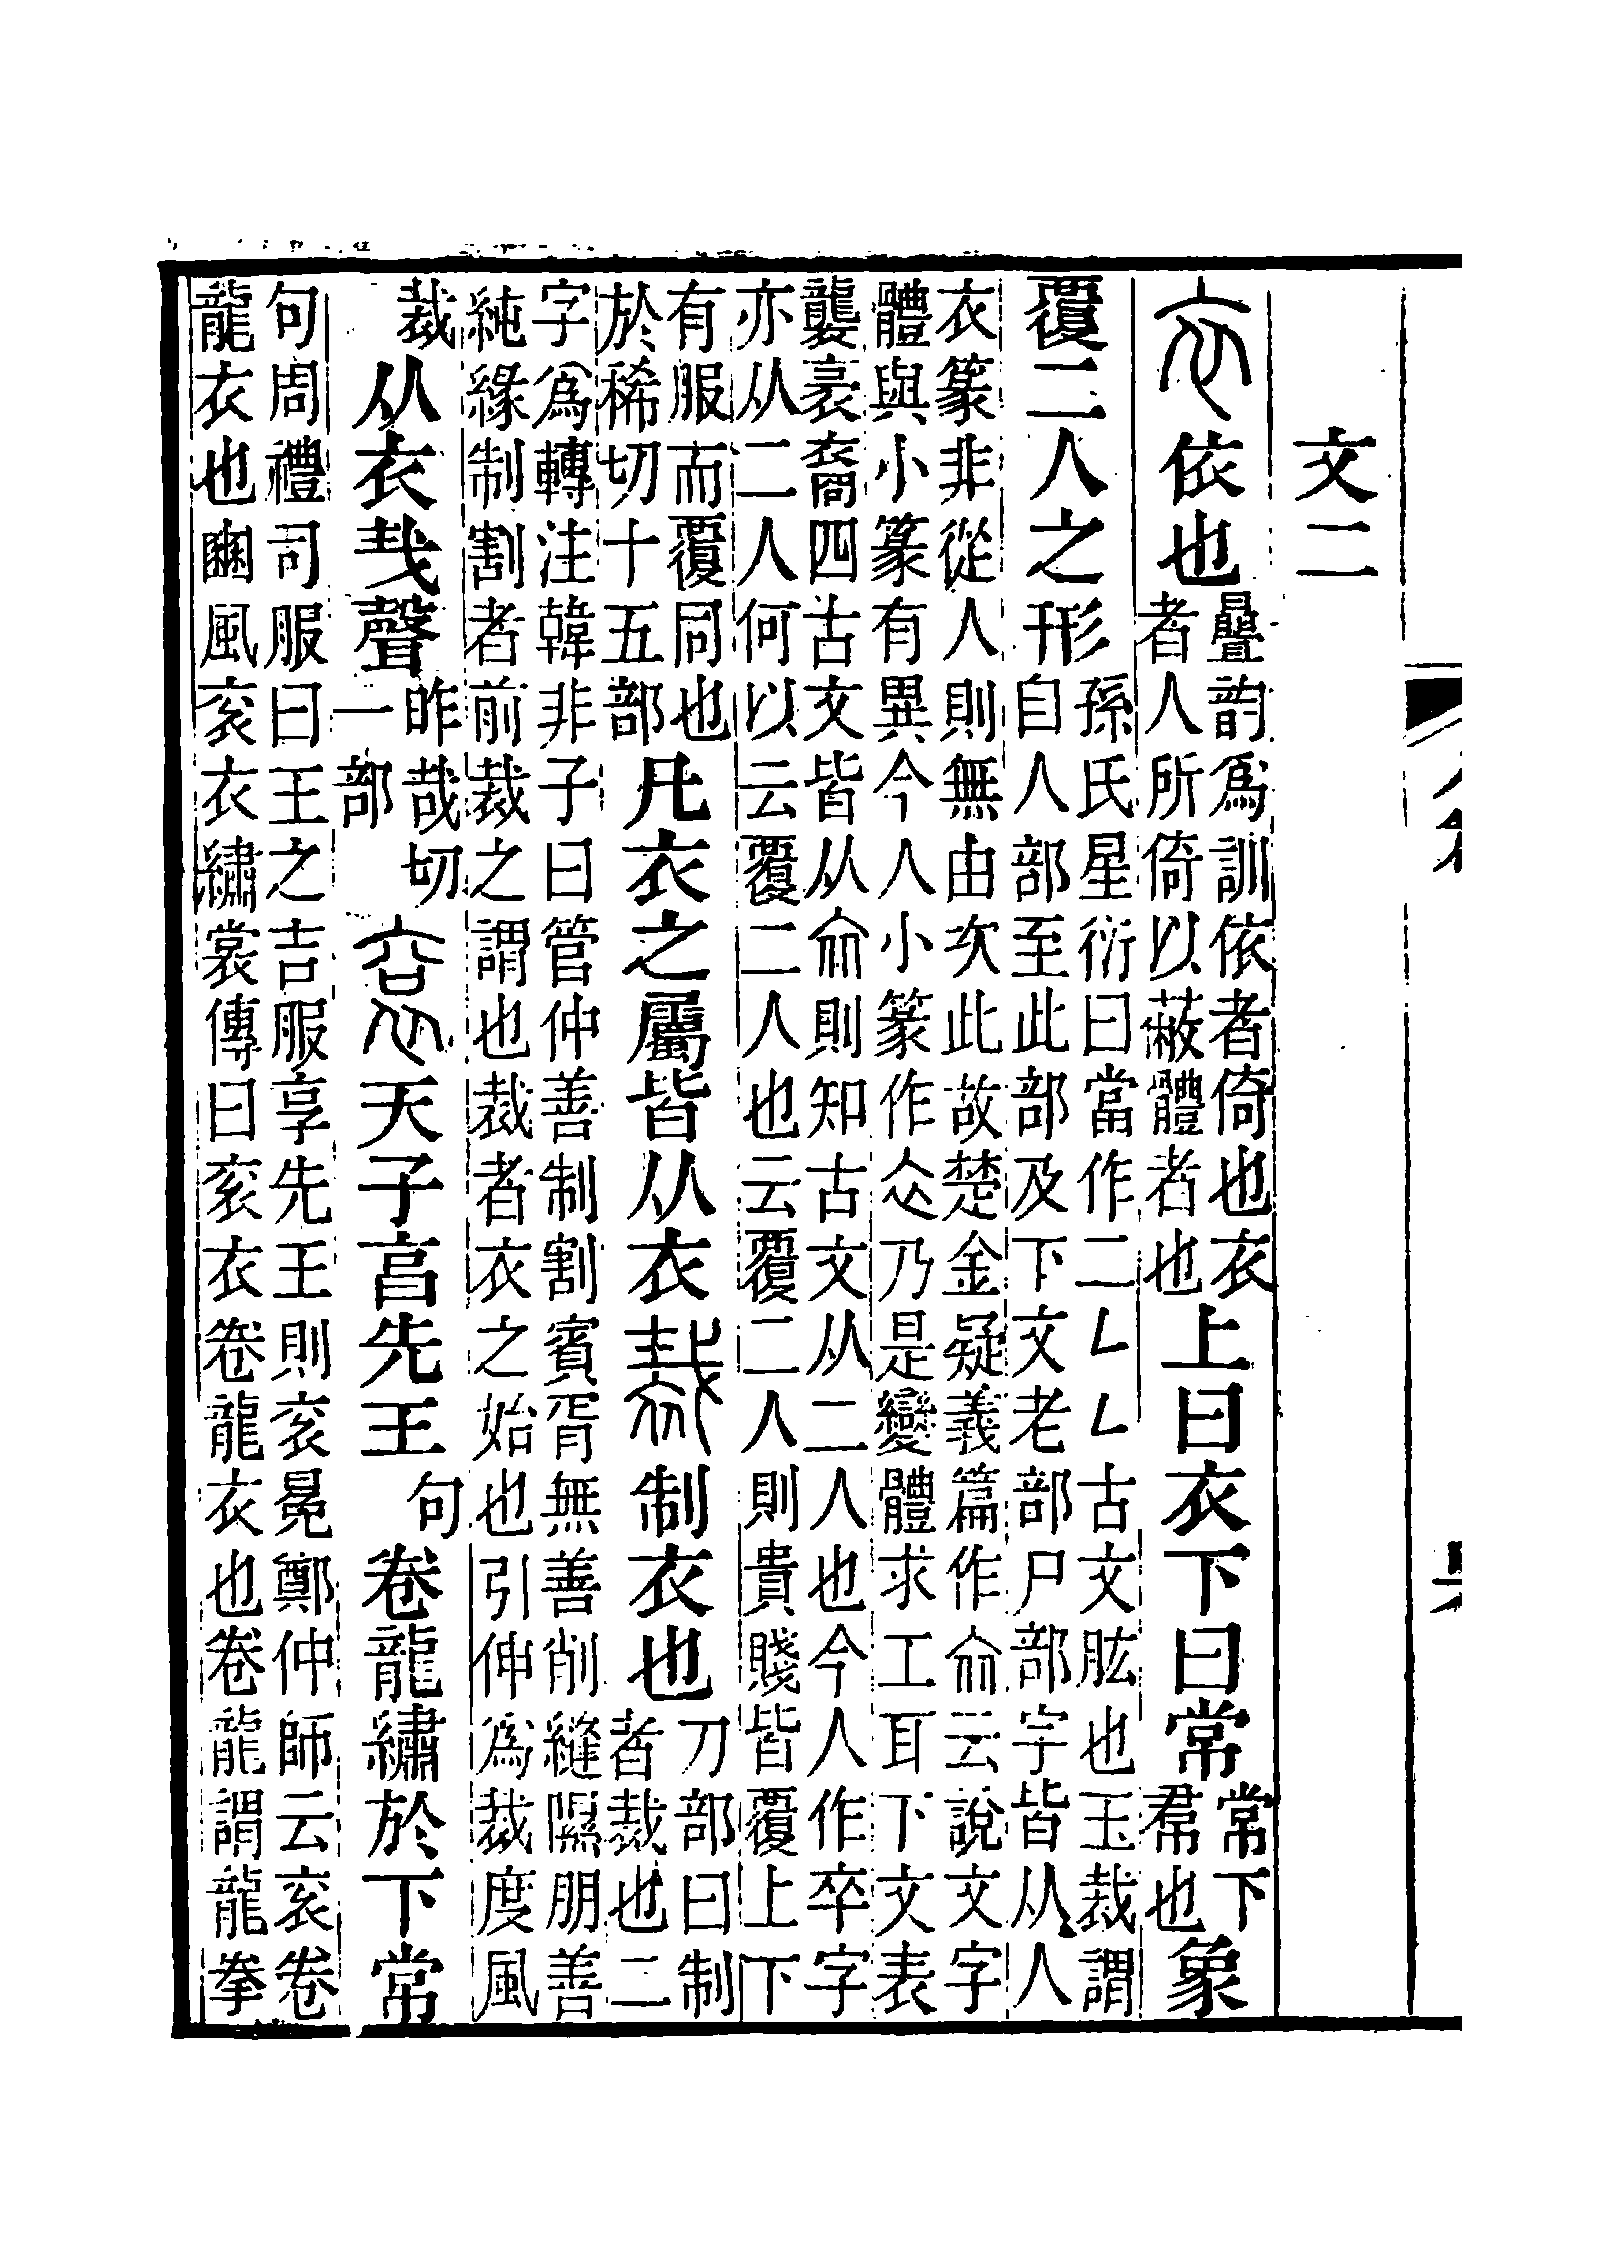 文二
衣依也疊韵爲訓依者倚也衣者人所倚以蔽體者也上曰衣下曰常常下帬也象
覆二人之形孫氏星衍曰當作二𠃊𠃊古文肱也玉裁謂自人部至此部及下文老部尸部字皆从人
衣篆非從人則無由次此故楚金疑義篇作云說文字體與小篆有異今人小篆作乃是變體求工耳下文表
襲袤裔四古文皆从則知古文从二人也今人作卒字亦从二人何以云覆二人也云覆二人則貴賤皆覆上下
有服而覆同也於稀切十五部凡衣之屬皆从衣裁制衣也刀部曰制者裁也二
字爲轉注韓非子曰管仲善制割賓胥無善削縫隰朋善純緣制割者前裁之謂也裁者衣之始也引伸爲裁度風
裁从衣𢦏聲昨哉切一部衮天子亯先王句卷龍繡於下常
句周禮司服曰王之吉服享先王則衮冕鄭仲師云衮卷龍衣也豳風衮衣繡裳傳曰衮衣卷龍衣也卷龍謂龍拳